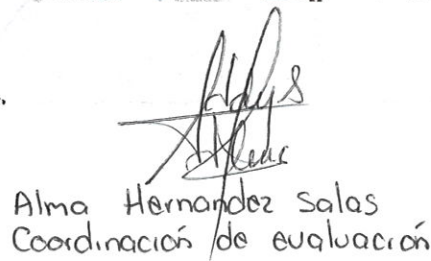 Alma Hernandez Salas
Coordinación de evaluación